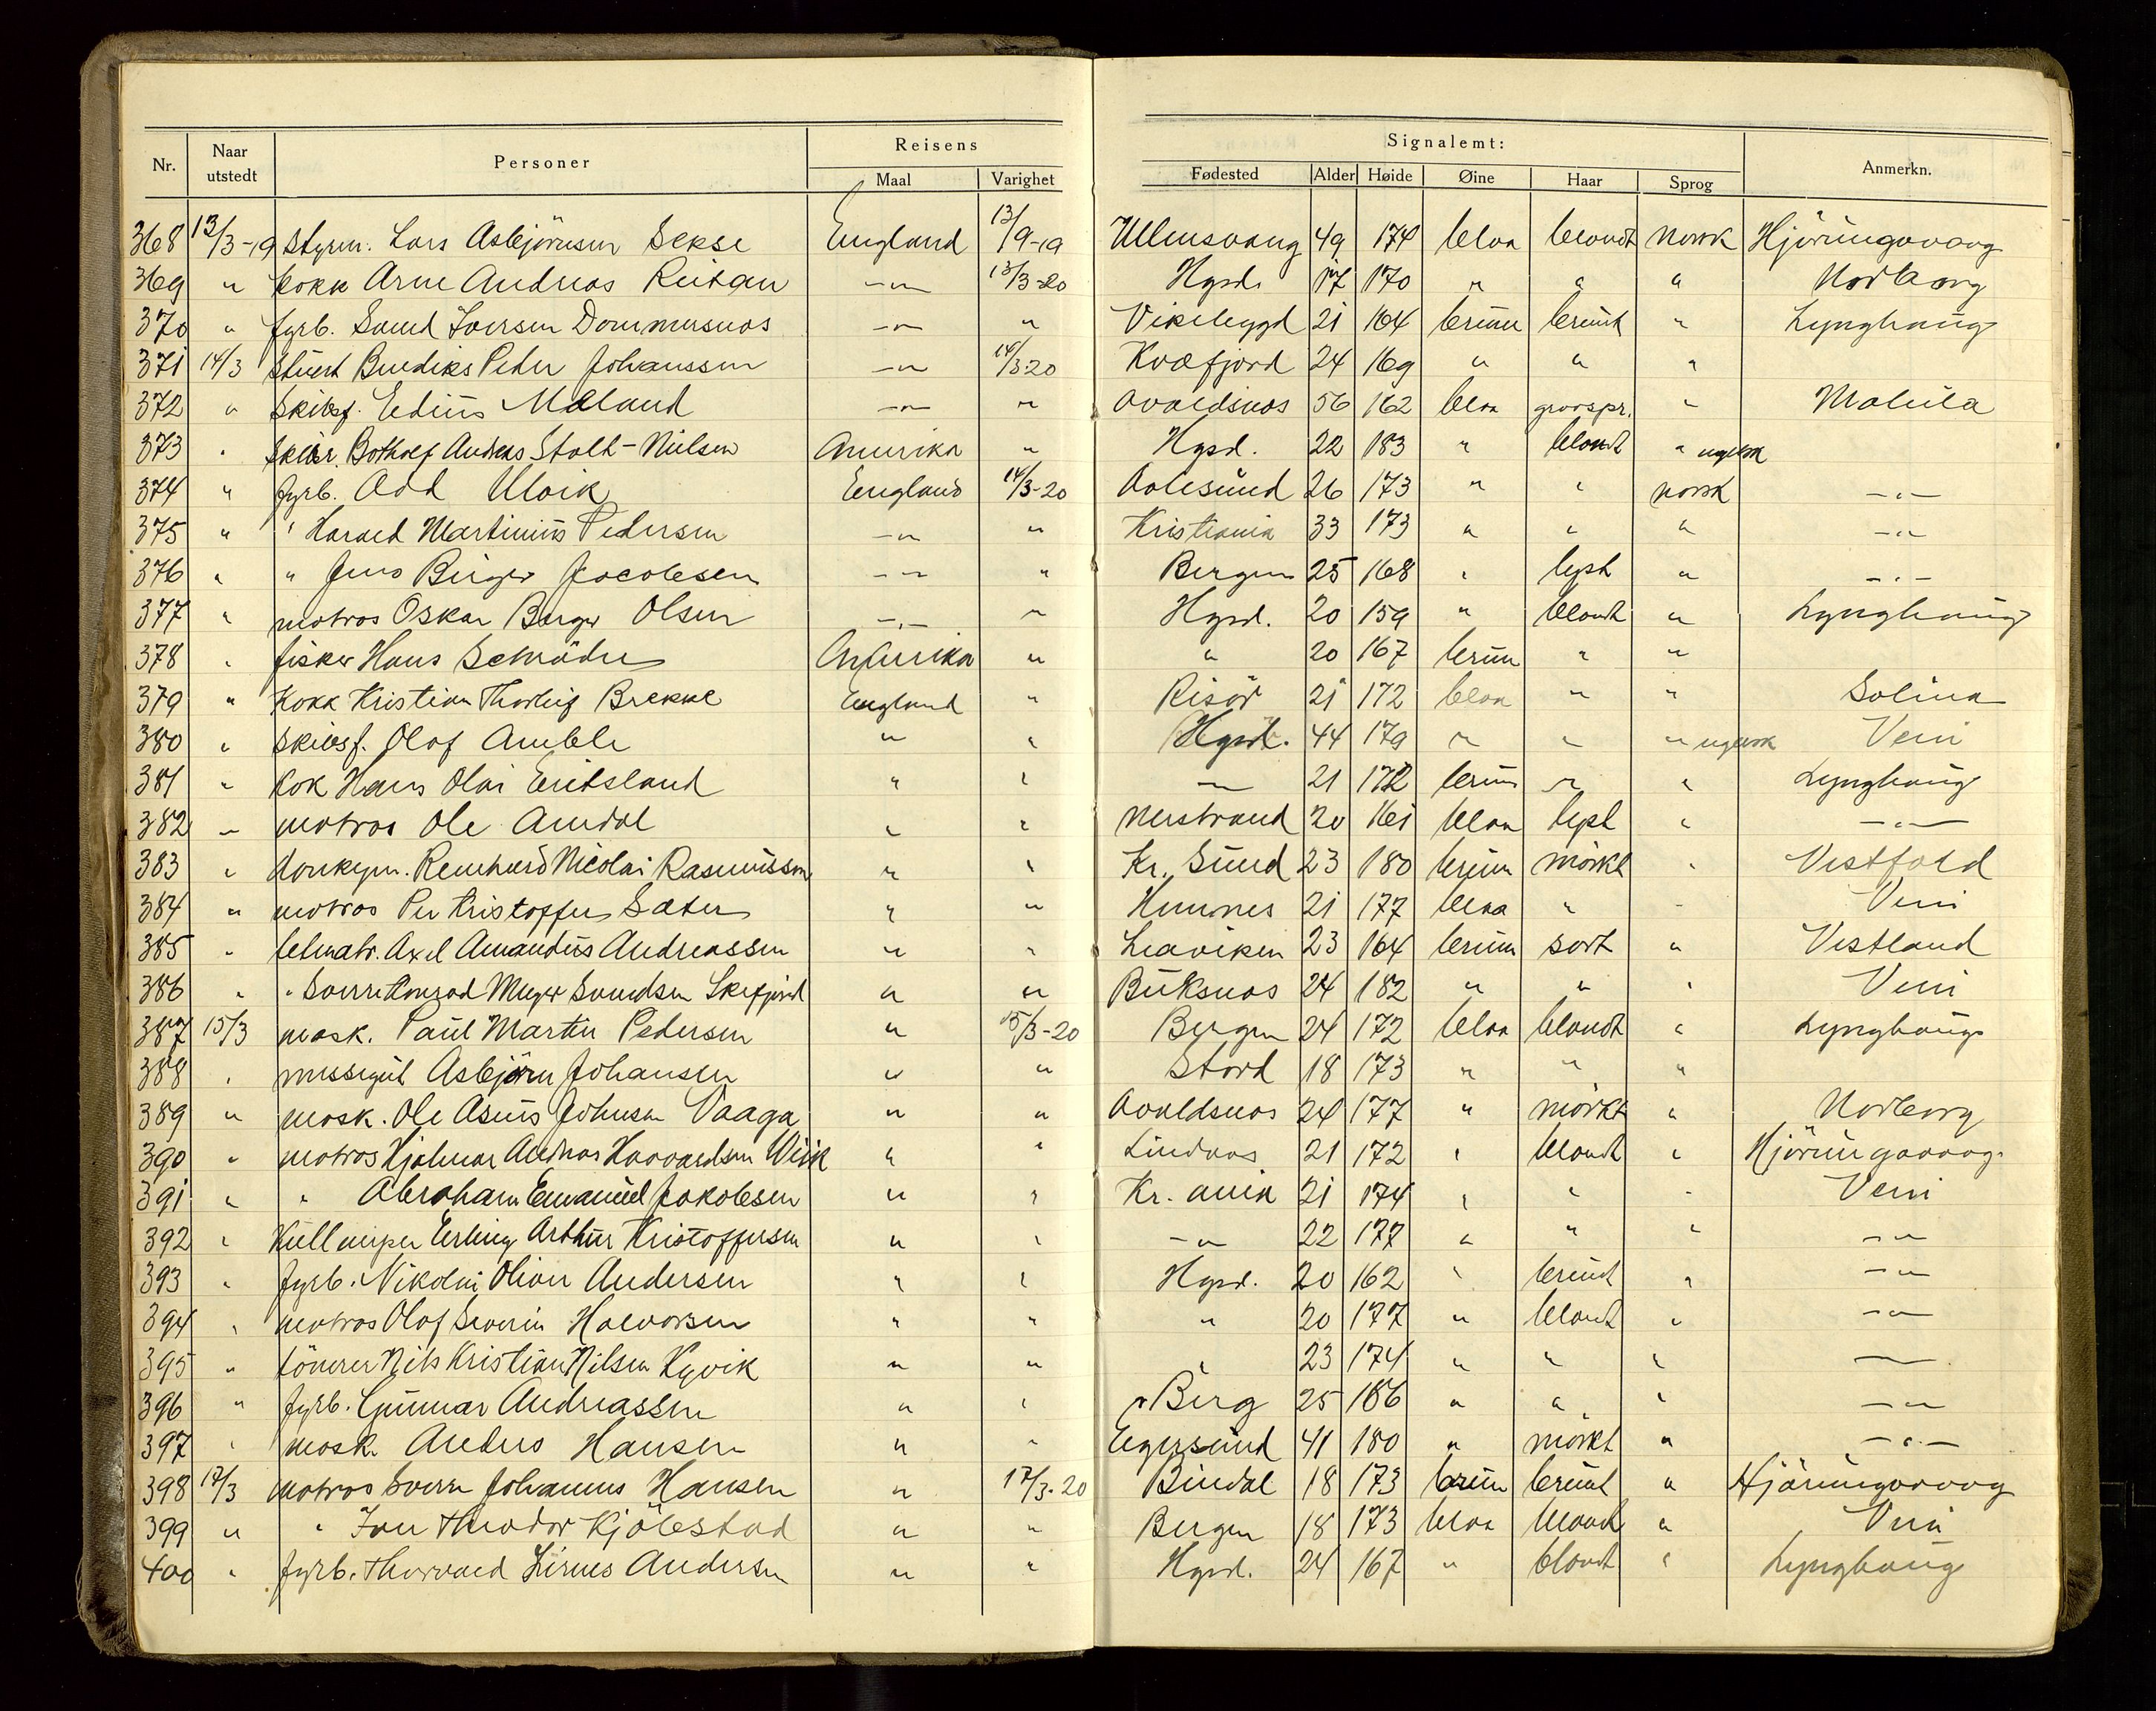 Nr. Naar utstedt Personer Reisens Maal Varighet Signalemt: Fødested Alder Høide Øine Haar Sprog Anmerkn.
368 13/3-19 Styrm. Lars Asbjörnsen Sekse England 13/9-19 Ullensvang 49 174 blaa blondt norsk Hjörungavaag
369 " kokk Arne Andreas Reitan -"- 13/3-20 Hgsd. 17 170 " " " Norborg
370 " fyrb. Svend Iversen Dommersnes -"- " Vikebygd 21 164 brune brunt " Lynghaug
371 14/3 Stuert Bendiks Peder Johanssen -"- 14/3-20 Kvæfjord 24 169 " " "
372 " Skibsf. Edius Mæland -"- " Avaldsnes 56 162 blaa graaspr. " Malula
373 " skibsr. Botholf Andreas Stolt-Nielsen Amerika " Hgsd. 22 183 " blondt " engelsk
374 " fyrb. Odd Ulvik England 14/3-20 Aalesund 26 173 " " norsk -"-
375 " " Harald Martinius Pedersen -"- " Kristiania 33 173 " " " -"-
376 " " Jens Birger Jacobsen -"- " Bergen 25 168 " lyst " -"-
377 " matros Oskar Berger Olsen -"- " Hgsd. 20 159 " blondt " Lynghaug
378 " fisker Hans Schröder Amerika " " 20 167 brun " "
379 " Kokk Kristian Thorleif Brekke England " Risör 21 172 blaa " " Solina
380 " Skibsf. Olaf Amble " " Hgsd. 44 179 " " " engelsk Veni
381 " Kok Hans Olai Eritsland " " -"- 21 172 brun " " Lynghaug
382 " matros Ole Amdal " " Nerstrand 20 161 blaa lyst " -"-
383 " donkeym. Reinhard Nicolai Rasmussen " " Kr. Sund 23 180 brun mörkt " Vestfold
384 " matros Per Kristoffer Sæter " " Hemnes 21 177 blaa " " Veni
385 " letmatr. Axel Amandus Andreassen " " Leaviken 23 164 brun sort " Vestland
386 " " Sverre Konrad Meyer Svendsen Skifjord " " Buksnes 24 182 " " " Veni
387 15/3 mask. Paul Martin Pedersen " 15/3-20 Bergen 24 172 blaa blondt " Lynghaug
388 " messegut Asbjörn Johansen " " Stord 18 173 " " "
389 " mask. Ole Asius Johnsen Vaaga " " Avaldsnes 24 177 " mörkt " Norborg
390 " matros Hjalmar Andreas Havardsen Wiik " " Lindaas 21 172 " blondt " Hjörungavaag
391 " " Abraham Emanuel Jakobsen " " Kr. ania 21 174 " " " Veni
392 " Kullemper Erling Arthur Kristoffersen " " -"- 22 177 " " " -"-
393 " fyrb. Nikolai Oliver Andersen " " Hgsd. 20 162 " brunt " -"-
394 " matros Olaf Severin Halvorsen " " " 20 177 " blondt " -"-
395 " tömrer Nils Kristian Nilsen Kyvik " " " 23 174 " " " -"-
396 " fyrb. Gunnar Andreassen " " Berg 25 186 " " " -"-
397 " mask. Anders Hansen " " Egersund 41 180 " mörkt " -"-
398 17/3 matros Sverre Johannes Hansen " 17/3-20 Bindal 18 173 brun brunt " Hjörungavaag
399 " " Ivar Theodor Kjölestad " " Bergen 18 173 blaa blondt " Veni
400 " fyrb. Thorvald Andersen " " Hgsd. 24 167 " blondt " Lynghaug